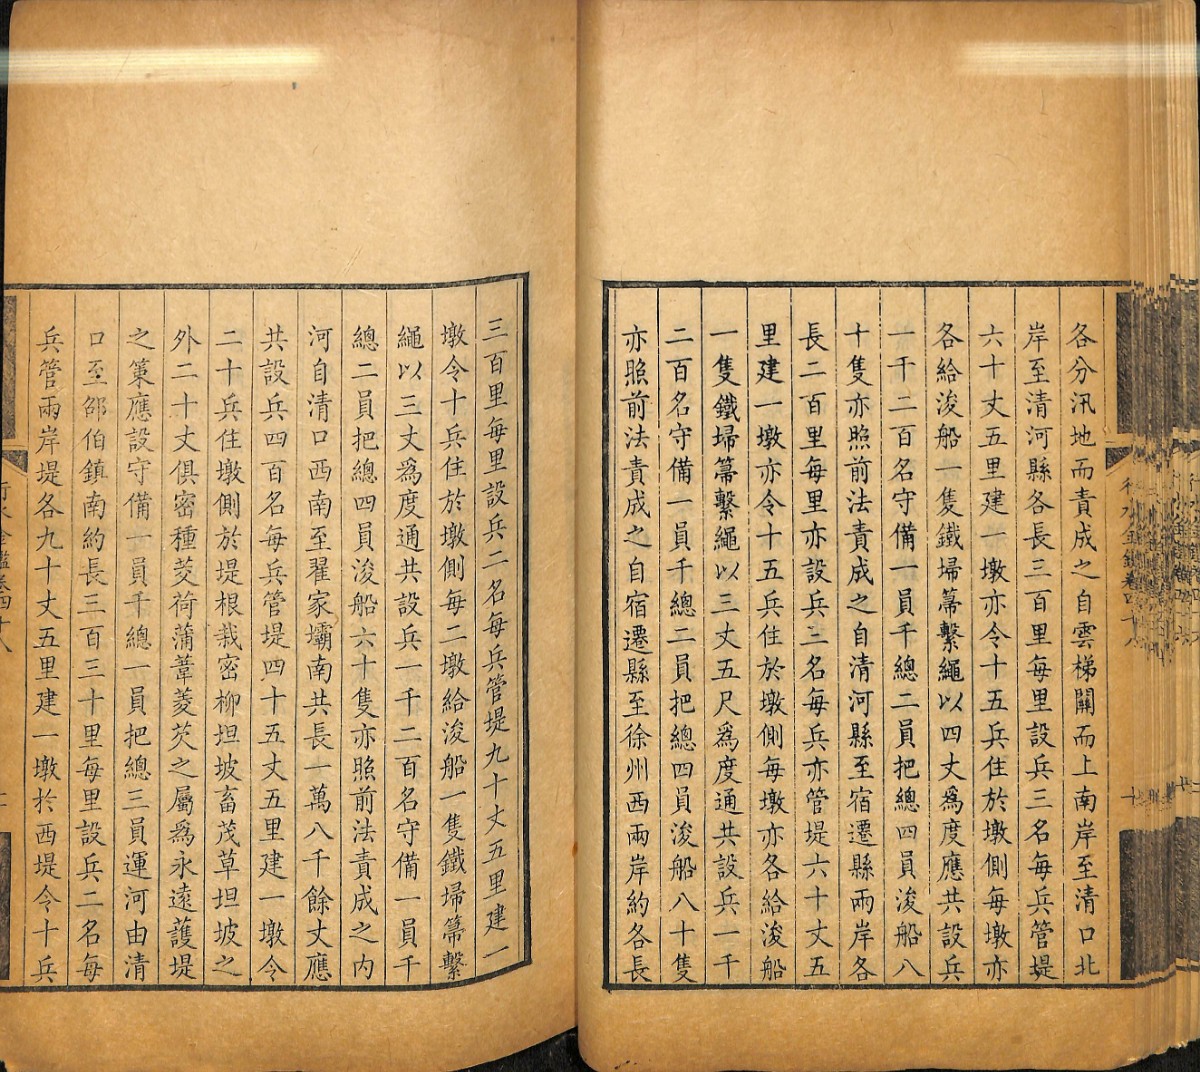 各分汛地而責成之自雲梯關而上南岸至清口北
岸至清河縣各長三百里每里設兵三名每兵管堤
六十丈五里建一墩亦令十五兵住於墩側每墩亦
各給浚船一隻鐵埽箒繫繩以四丈爲度應共設兵
一千二百名守備一員千總二員把總四員浚船八
十隻亦照前法責成之自清河縣至宿遷縣兩岸各
長二百里每里亦設兵三名每兵亦管堤六十丈五
里建一墩亦令十五兵住於墩側每墩亦各給浚船
一隻鐵埽箒繫繩以三丈五尺爲度通共設兵一千
二百名守備一員千總二員把總四員浚船八十隻
亦照前法責成之自宿遷縣至徐州西兩岸約各長
三百里每里設兵二名每兵管堤九十丈五里建一
墩令十兵住於墩側每二墩給浚船一隻鐵埽箒繫
繩以三丈爲度通共設兵一千二百名守備一員千
總二員把總四員浚船六十隻亦照前法責成之内
河自清口西南至翟家壩南共長一萬八千餘丈應
共設兵四百名每兵管堤四十五丈五里建一墩令
二十兵住墩側於堤根栽密柳坦坡畜茂草坦坡之
外二十丈俱密種茭荷蒲葦菱芡之屬爲永遠護堤
之策應設守備一員千總一員把總三員運河由清
口至邵伯鎮南約長三百三十里每里設兵二名每
兵管兩岸堤各九十丈五里建一墩於西堤令十兵
行水金鑑卷四十八